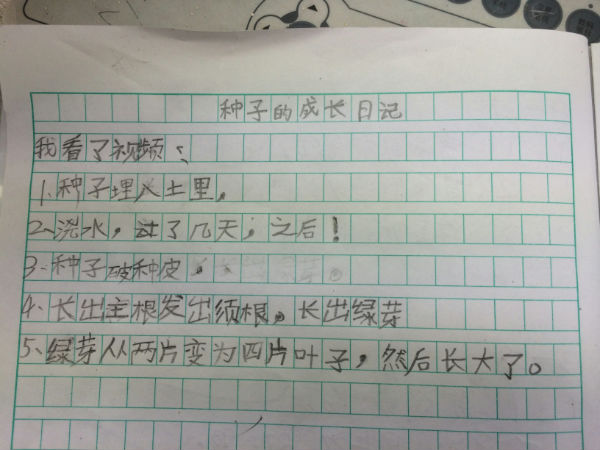 种子的成长日记
我看了视频：
1、种子埋入土里。
2、浇水，过了几天，之后！
3、种子破种皮。
4、长出主根发出须根。长出绿芽
5、绿芽从两片变为四片叶子，然后长大了。